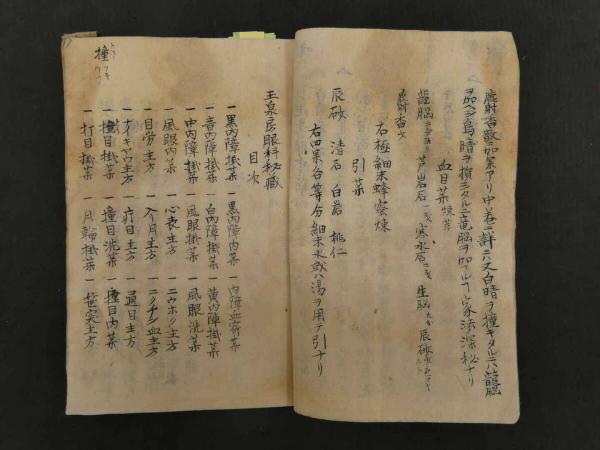 麝射香散ニ加薬アリ中巻ニ詳ニ入又白晴ヲ撞キタルニハ龍脳
ヲ加ヘシ烏晴ヲ損シタルニ竜脳ヲ加フル家法深秘ナリ
血目薬 煉薬
龍脳 芦岩石 寒水石 生脳 辰砂
麝香
右極細末蜂蜜煉
引薬
辰砂 滑石 白礬 桃仁
右四薬各等分細末水或ハ湯ヲ用テ引ナリ
玉泉房眼科秘蔵
目次
一黒内障掛薬 一黒内障内薬 一内障血斎薬
一青内障掛薬 一白内障掛薬 一黄内障掛薬
一中内障掛薬 一風眼掛薬 一風眼洗薬
一風眼内薬 一心表主方 一ニウホク主方
一目労主方 一入月主方 血主方
主方 一疔目主方 一過目主方
一撞目掛薬 一撞目洗薬 一撞目内薬
一打目掛薬 一月輪掛薬 主方
撞